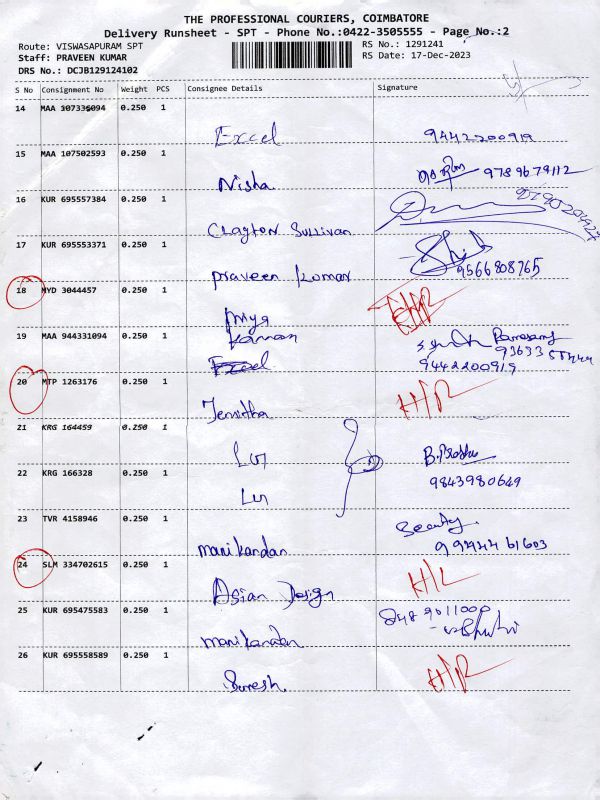 THE PROFESSIONAL COURIERS, COIMBATORE
Delivery Runsheet - SPT - Phone No.:0422-3505555 - Page No.:2
Route: VISWASAPURAM SPT
RS No.: 1291241
Staff: PRAVEEN KUMAR
RS Date: 17-Dec-2023
DRS No.: DCJB129124102
S No Consignment No Weight PCS Consignee Details Signature
14 MAA 107336094 0.250 1
Excel 9442200919
15 MAA 107502593 0.250 1
Nisha 9789679112
16 KUR 695557384 0.250 1
Clayton Sullivan
17 KUR 695553371 0.250 1
Praveen Kumar 9566808765
18 MYD 3044457 0.250 1
Priya
19 MAA 944331094 0.250 1
Kannan
Excel 9442200919
20 MTP 1263176 0.250 1
H/R
Jenitha
21 KRG 164459 0.250 1
22 KRG 166328 0.250 1
B. Prabhu
9843980649
23 TVR 4158946 0.250 1
Manikandan
24 SLM 334702615 0.250 1
Asian Design
25 KUR 695475583 0.250 1
Manikandan
26 KUR 695558589 0.250 1
H/R
Suresh